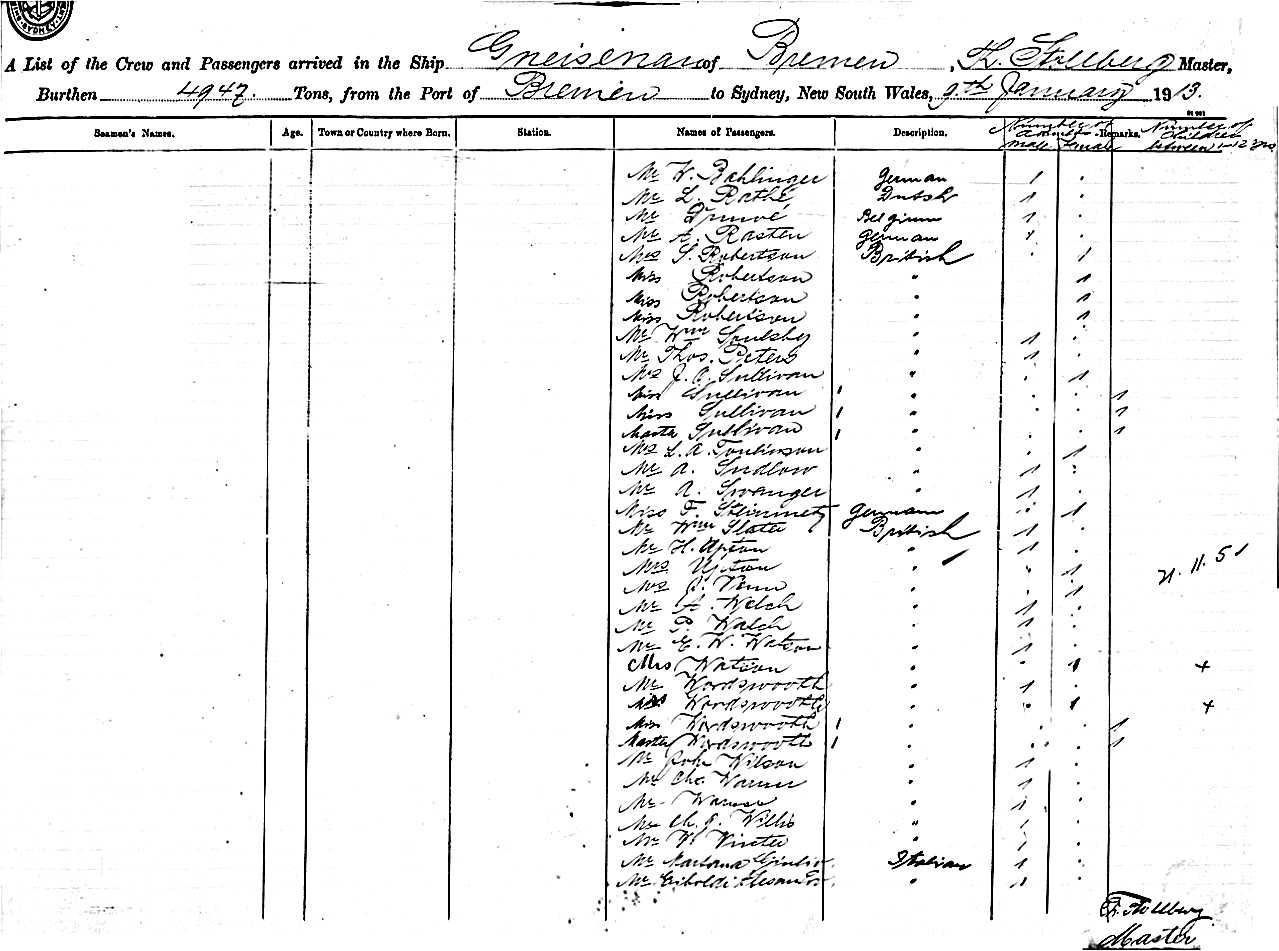 SYDNEY
A List of the Crew and Passengers arrived in the Ship Gneisenau of Bremen, Th. Stollberg Master,
Burthen 4947. Tons, from the Port of Bremen to Sydney, New South Wales, 9th January 1913.
Seamen's Names. Age. Town or Country where Born. Station. Names of Passengers. Description. Number of Adults male female Remarks. Number of Children between 1-12 yrs
Mr W. Bahlinger German 1 .
Mr L. Rathé Dutch 1 .
Mr Belgium 1 .
Mr A. Rasten German 1 .
Mrs S. Robertson British . 1
Miss Robertson " 1
Miss Robertson " 1
Miss Robertson " 1
Mr Wm Soulsby " 1 .
Mr Thos. Peters " 1 .
Mrs J. A. Sullivan " . 1
Miss Sullivan 1 " . . 1
Miss Sullivan 1 " . . 1
Master Sullivan 1 " . . 1
Mrs L. A. Tomlinson " . 1
Mr A. Sudlow " 1 .
Mr A. Swanger " 1 .
Miss F. Steinmetz German . 1
Mr Wm Slater British 1 .
Mr H. Upton " 1 .
Mrs Upton " . 1 21.11.51
Mrs Venn " . 1
Mr A. Welch " 1 .
Mr P. Walch " 1 .
Mr E. W. Watson " 1 .
Mrs Watson " . 1 +
Mr Wordswooth " 1 .
Wordswooth " . 1 +
Miss Wordswooth 1 " . . 1
Master Wordswooth 1 " . . 1
Mr John Wilson " 1 .
Mr Chs. Warner " 1 .
Mr Warner " 1 .
Mr Ch. Willis " 1 .
Mr W. Winter " 1 .
Mr Giulio Italian 1 .
Mr " 1 .
Th. Stollberg
Master